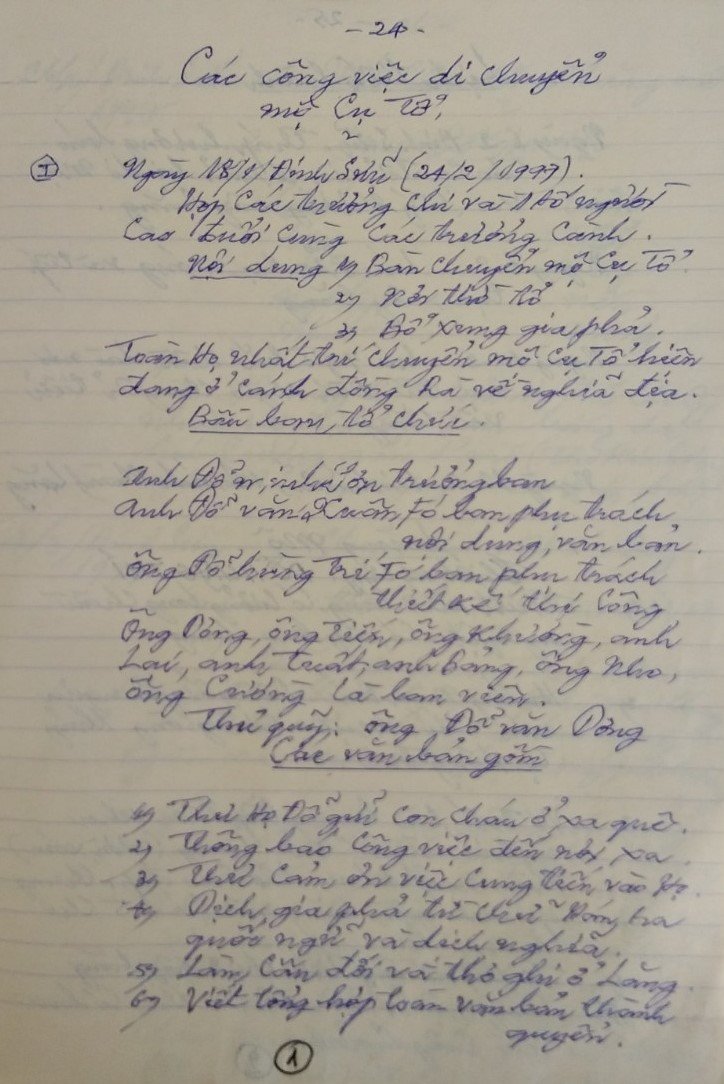 - 24 -
Các công việc di chuyển
mộ Cụ Tổ.
I Ngày 18/1/Đinh Sửu (24/2/1997).
Họp Các trưởng chi và 1 số người
Cao tuổi Cùng Các trưởng Cành.
Nội dung 1) Bàn chuyển mộ Cụ Tổ
2) Nơi thờ tổ
3) Bổ xung gia phả.
Toàn Họ nhất trí chuyển mộ Cụ Tổ hiện
đang ở cánh đồng Rà về nghĩa địa.
Bầu ban tổ chức.
Anh Đỗ trưởng ban
anh Đỗ văn Xuân, Fó ban phụ trách
nội dung, văn bản.
ông Đỗ hùng Trí Fó ban phụ trách
thiết kế thi Công
Ông Dóng, ông Tiện, ông Khương, anh
Lai, anh Tuất, anh Bảng, ông Nho,
ông Cương là ban viên.
Thủ quỹ: ông Đỗ văn Dóng
Các văn bản gồm
1) Thư Họ Đỗ gửi Con Cháu ở xa quê.
2) Thông báo Công việc đến nơi xa.
3) Thư Cảm ơn việc Cung tiến vào Họ.
4) Dịch gia phả từ chữ Hán ra
quốc ngữ và dịch nghĩa.
5) Làm Câu đối và thơ ghi ở Lăng.
6) Viết tổng hợp toàn văn bản thành
quyển.
1